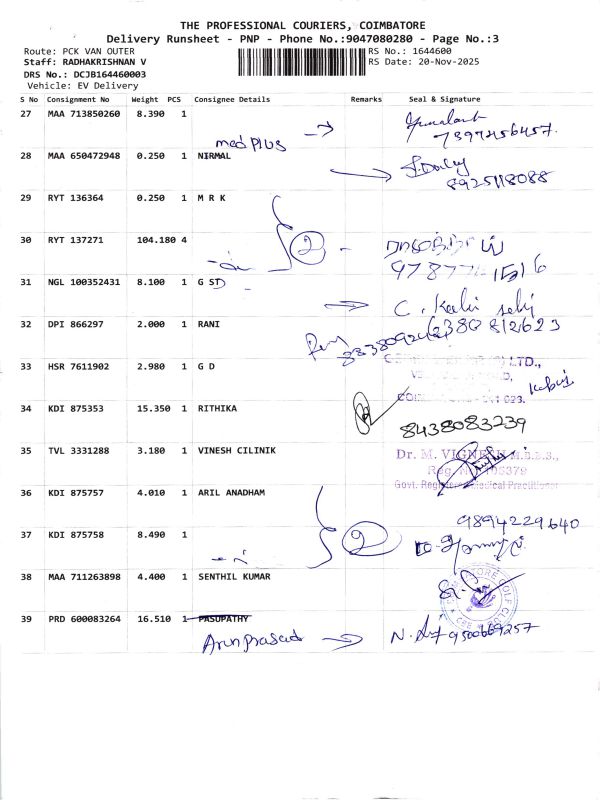 THE PROFESSIONAL COURIERS, COIMBATORE
Delivery Runsheet - PNP - Phone No.:9047080280 - Page No.:3
Route: PCK VAN OUTER RS No.: 1644600
Staff: RADHAKRISHNAN V RS Date: 20-Nov-2025
DRS No.: DCJB164460003
Vehicle: EV Delivery
S No Consignment No Weight PCS Consignee Details Remarks Seal & Signature
27 MAA 713850260 8.390 1
medplus
28 MAA 650472948 0.250 1 NIRMAL
8925118088
29 RYT 136364 0.250 1 M R K
30 RYT 137271 104.180 4
2
31 NGL 100352431 8.100 1 G ST
32 DPI 866297 2.000 1 RANI
33 HSR 7611902 2.980 1 G D
LTD.,
34 KDI 875353 15.350 1 RITHIKA
8438083239
35 TVL 3331288 3.180 1 VINESH CILINIK
Dr. M. VIGNESH M.B.B.S.,
Govt. Registered Medical Practitioner
36 KDI 875757 4.010 1 ARIL ANADHAM
9894229640
37 KDI 875758 8.490 1
2
38 MAA 711263898 4.400 1 SENTHIL KUMAR
COIMBATORE GOLF CLUB
39 PRD 600083264 16.510 1 PASUPATHY
Arunprasad
9500669257